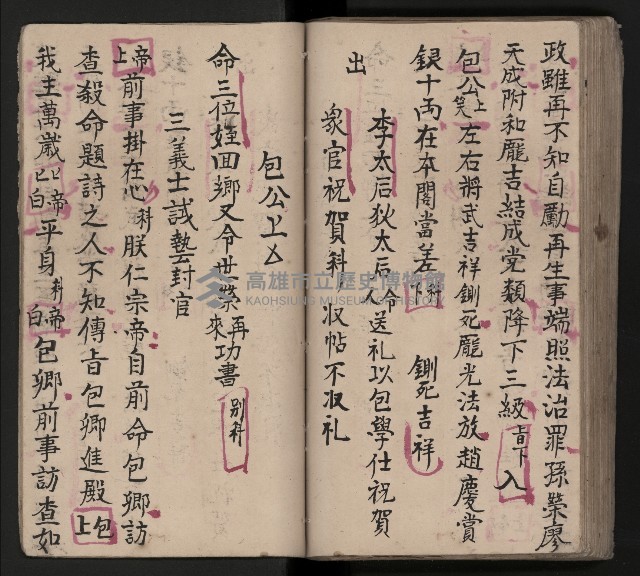 政雖再不知自勵再生事端照法治罪孫榮廖
天成附和龐吉結成党類降下三級旨下入
包公上笑左右將武吉祥鍘死龐光法放趙慶賞
銀十両在本閣當差科下 鍘死吉祥
李太后狄太后令送礼以包學仕祝賀
衆官祝賀科収帖不収礼
出
包公上
命三位姪回鄉又令世榮再來功書別科
三義士試藝封官
帝上前事掛在心科朕仁宗帝自前命包卿訪
查殺命題詩之人不知傳旨包卿進殿包上
我主萬歲帝白平身科帝白包卿前事訪查如
高雄市立歷史博物館
KAOHSIUNG MUSEUM OF HISTORY